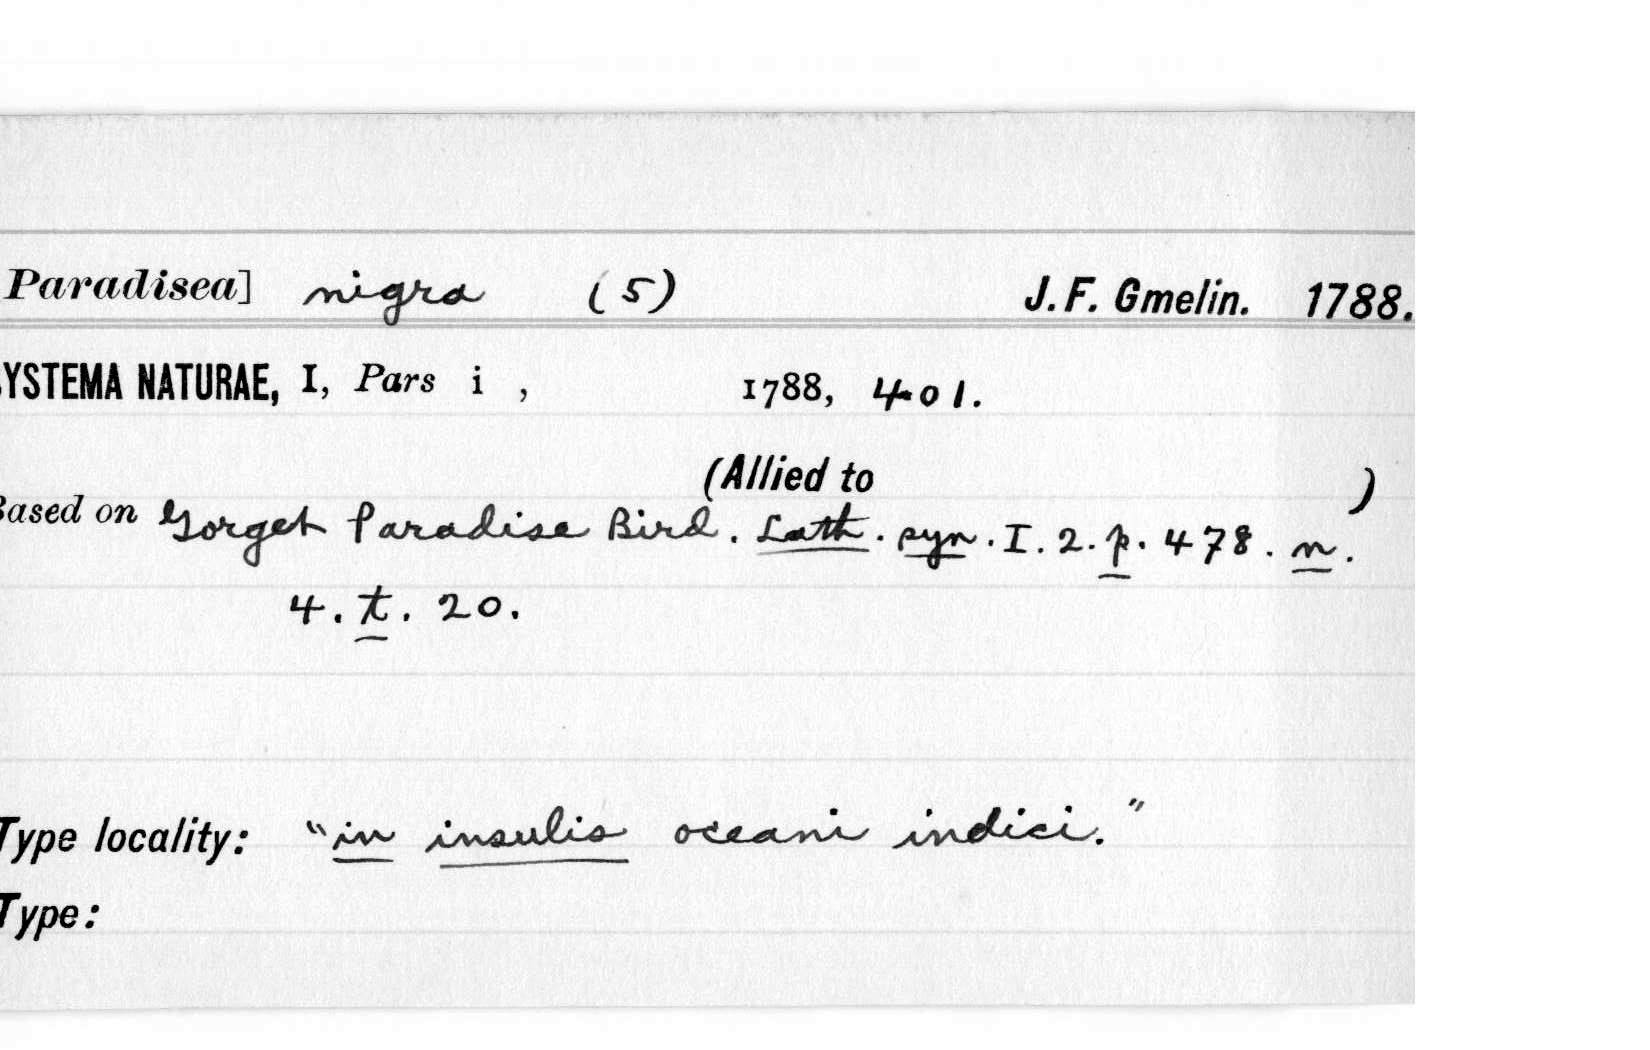 Paradisea] nigra (5) J. F. Gmelin. 1788.
YSTEMA NATURAE, I, Pars i , 1788, 401.
(Allied to )
Based on Gorget Paradise Bird. Lath. syn. I. 2. p. 478. n.
4. t. 20.
Type locality: "in insulis oceani indici."
Type: